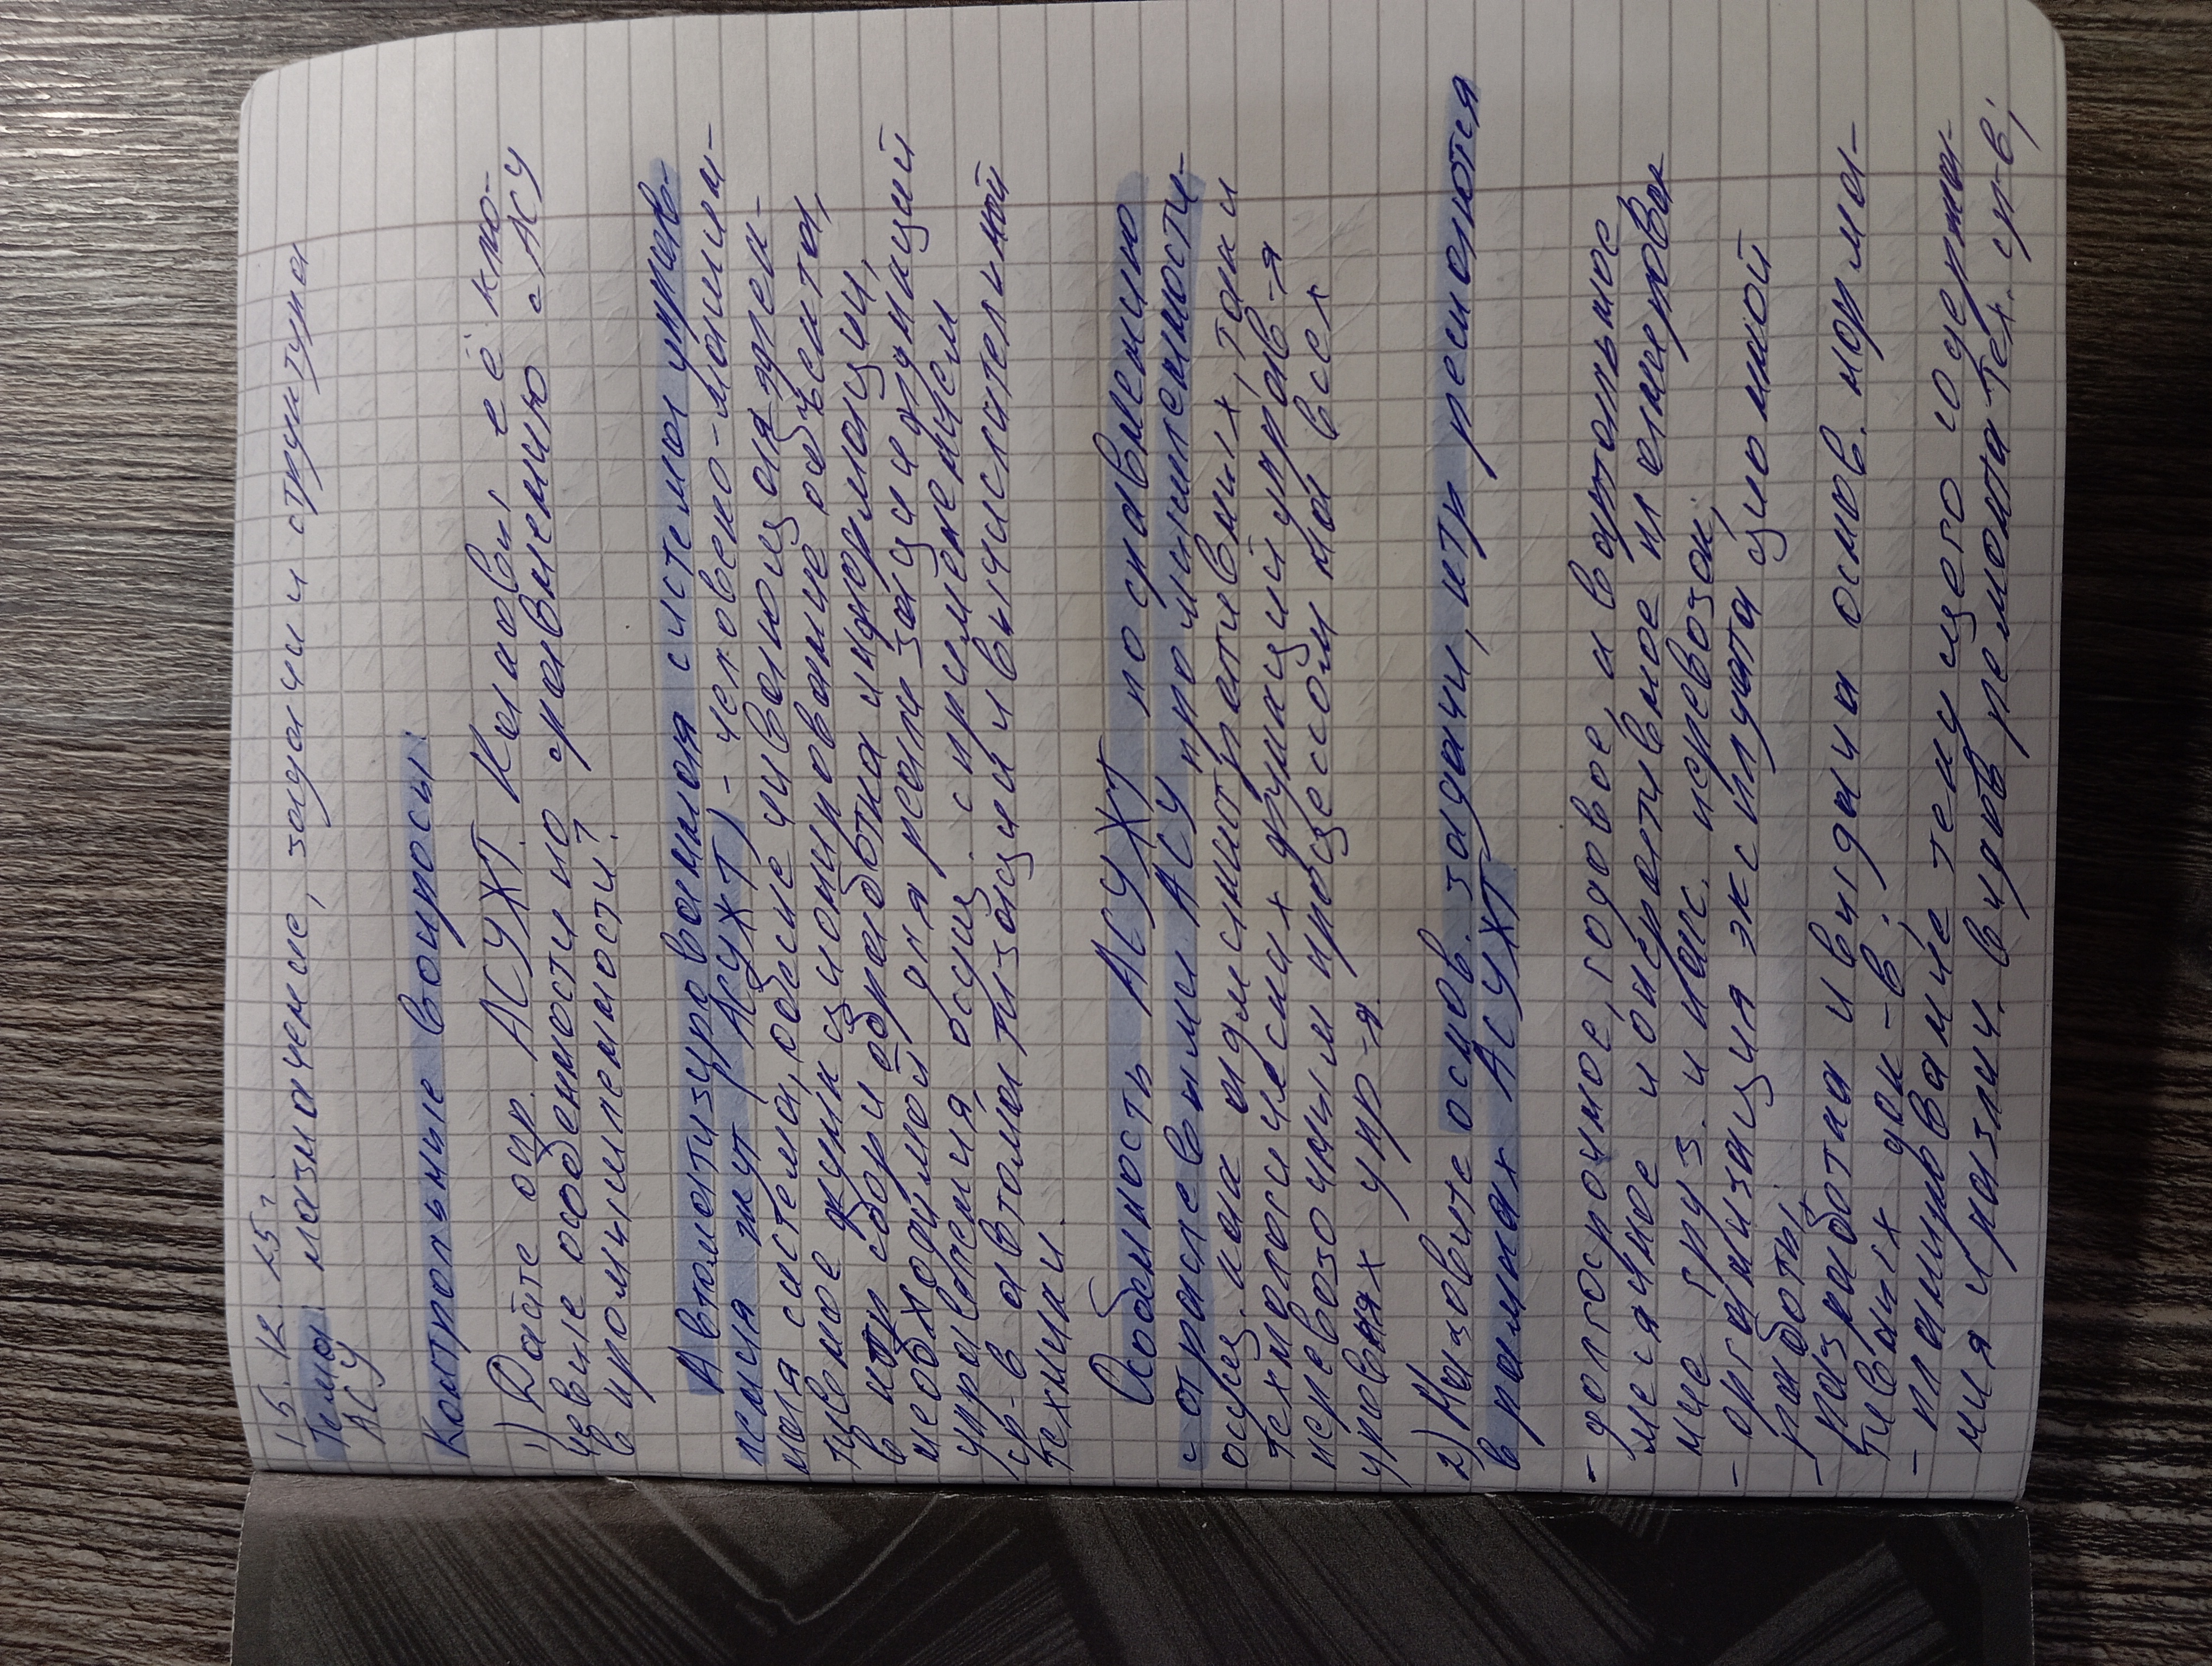 15. 12. 25г.
Тема: назначение, задачи и структура
АСУ
Контрольные вопросы:
1) Дайте опр. АСУЖТ. Каковы её клю-
чевые особенности по сравнению с АСУ
в промышленности?
Автоматизированная система управ-
ления жт (АСУЖТ) – человеко-машин-
ная система, обеспечивающая эффек-
тивное функционирование объекта,
в котр сбор и обработка информации,
необходимой для реализации функций
управления, осущ. с применением
ср-в автоматизации и вычислительной
техники.
Особенность АСУЖТ по сравнению
с отраслевыми АСУ промышленности –
осущ-ика административных, так и
технологических функций управ-я
перевозочным процессом на всех
уровнях упр-я.
2) Назовите основ. задачи, котр решаются
в рамках АСУЖТ.
- долгосрочное, годовое, квартальное,
месячное и оперативное планирова
ние груз. и пас. перевозок;
- организация эксплуатационной
работы;
- разработка и выдача основ. норма-
тивных док-в;
- планирование текущего содержа-
ния и различ. видов ремонта тех. ср-в;